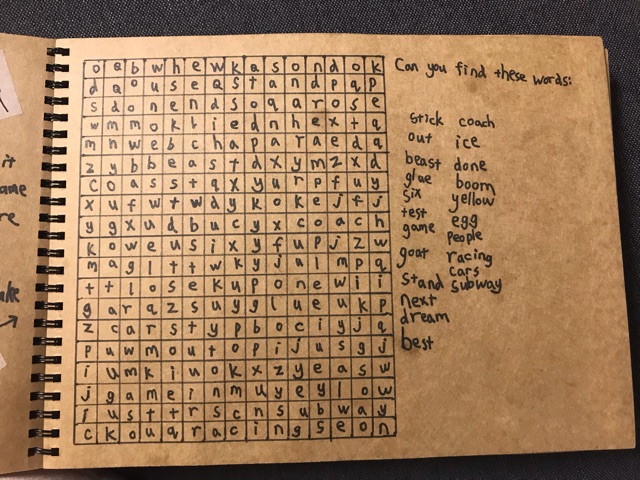 it
ame
re
ake
o a b w h e w k a s o n d o k
d a o u s e a s t a n d p q p
s d o n e n d s o q a r o s e
w m m o k l i e d n h e x t q
m n w e b c h a p a r a e d q
z y b b e a s t d x y m z x d
c o a s s t q x y u r p f u y
x u f w t w d y k o k e j f j
y g x u d b u c y x c o a c h
k o w e u s i x y f u p j z w
m a g l t t w k y j u l m p q
t t l o s e k u p o n e w i i
g a r q z s u y g l u e u k p
z c a r s t y p b o c i y j q
p u w m o u t o p i j u s g j
i u m k i n o k x z y e a s w
j g a m e i n m u y e y l o w
j u s t t r s c n s u b w a y
c k o u q r a c i n g s e o n
Can you find these words:
stick coach
out ice
beast done
glue boom
six yellow
test egg
game people
goat racing
cars
stand subway
next
dream
best